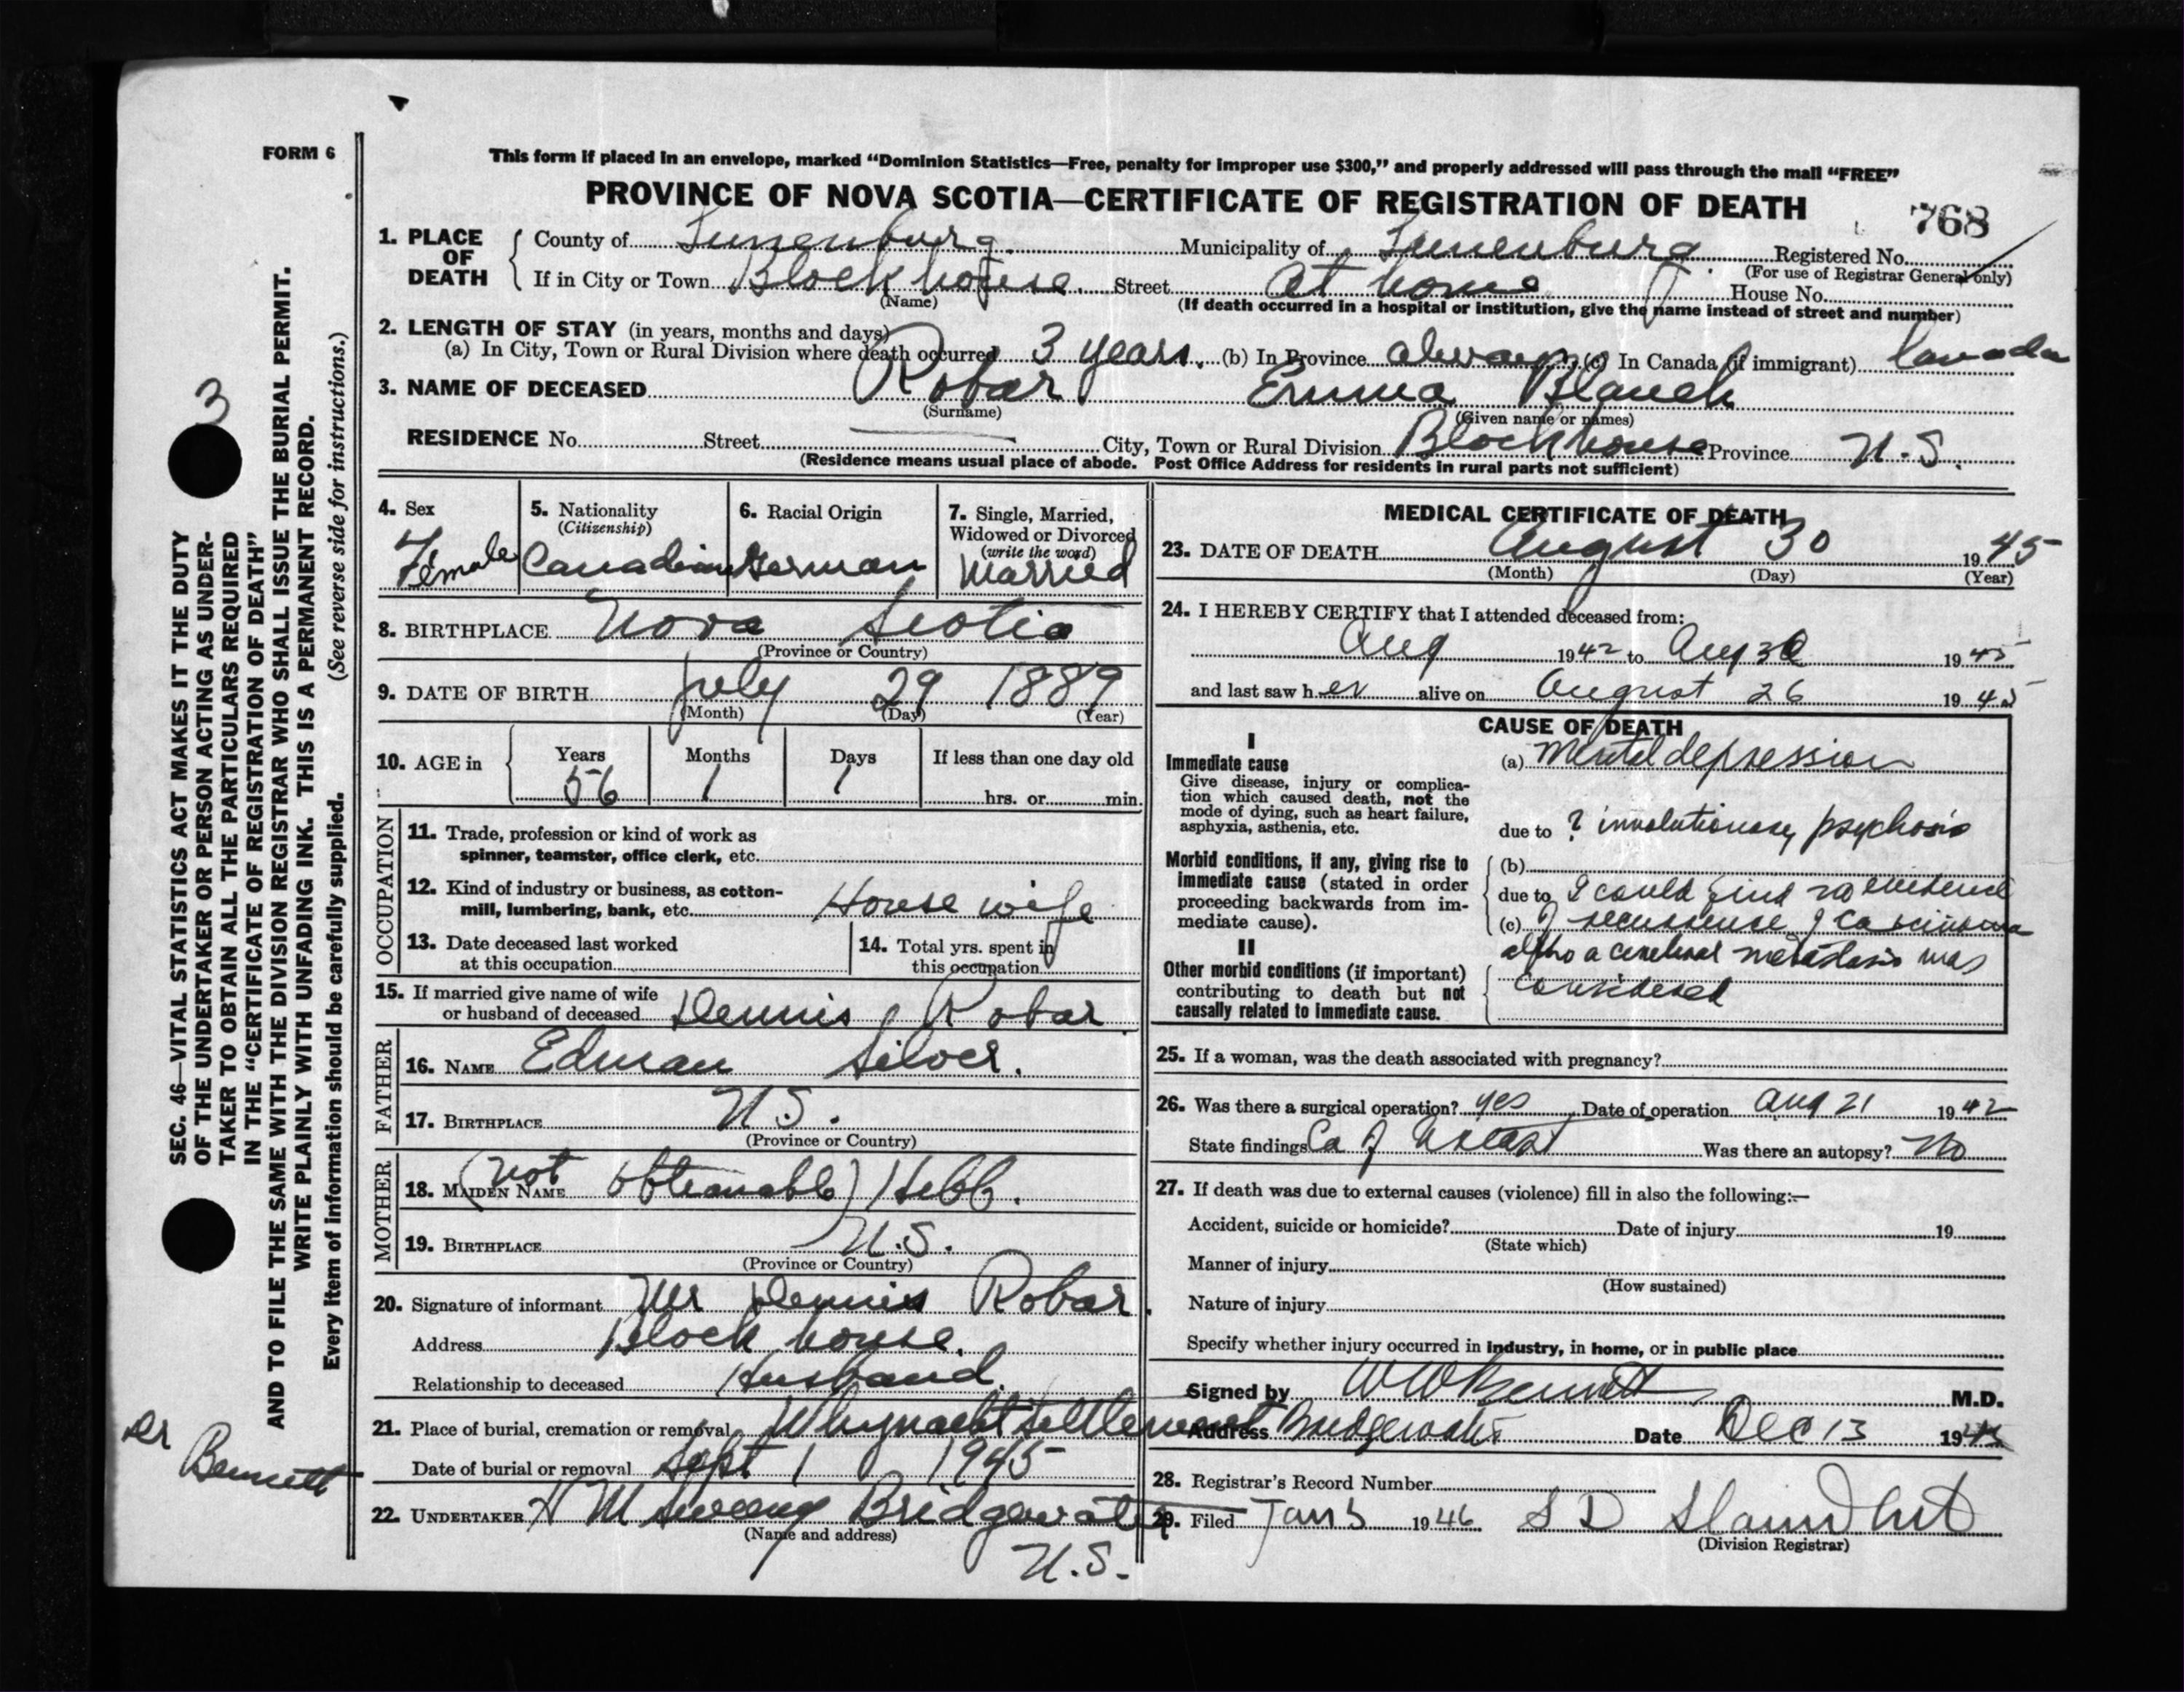 FORM 6
This form if placed in an envelope, marked “Dominion Statistics—Free, penalty for improper use $300,” and properly addressed will pass through the mail “FREE”
PROVINCE OF NOVA SCOTIA—CERTIFICATE OF REGISTRATION OF DEATH
768
1. PLACE OF DEATH
County of Lunenburg Municipality of Lunenburg Registered No.
(For use of Registrar General only)
If in City or Town Blockhouse. Street At home House No.
(Name)
(If death occurred in a hospital or institution, give the name instead of street and number)
2. LENGTH OF STAY (in years, months and days)
(a) In City, Town or Rural Division where death occurred 3 years. (b) In Province always (c) In Canada (if immigrant) Canada
3. NAME OF DECEASED Robar Emma Blanch
(Surname) (Given name or names)
RESIDENCE No. Street City, Town or Rural Division Blockhouse Province N.S.
(Residence means usual place of abode. Post Office Address for residents in rural parts not sufficient)
4. Sex
Female
5. Nationality
(Citizenship)
Canadian
6. Racial Origin
German
7. Single, Married,
Widowed or Divorced
(write the word)
Married
8. BIRTHPLACE Nova Scotia
(Province or Country)
9. DATE OF BIRTH July 29 1889
(Month) (Day) (Year)
10. AGE in Years Months Days If less than one day old
56 1 1 hrs. or min.
OCCUPATION
11. Trade, profession or kind of work as
spinner, teamster, office clerk, etc.
12. Kind of industry or business, as cotton-
mill, lumbering, bank, etc. House wife
13. Date deceased last worked
at this occupation
14. Total yrs. spent in
this occupation
15. If married give name of wife
or husband of deceased Dennis Robar
FATHER
16. NAME Edman Silver.
17. BIRTHPLACE N.S.
(Province or Country)
MOTHER
18. MAIDEN NAME (not obtianable) Hebb.
19. BIRTHPLACE N.S.
(Province or Country)
20. Signature of informant Mr Dennis Robar.
Address Block house.
Relationship to deceased Husband.
21. Place of burial, cremation or removal Whynacht Settlement
Date of burial or removal Sept 1 1945
22. UNDERTAKER H M Sweeny Bridgewater
(Name and address)
N.S.
MEDICAL CERTIFICATE OF DEATH
23. DATE OF DEATH August 30 1945
(Month) (Day) (Year)
24. I HEREBY CERTIFY that I attended deceased from:
Aug 1942 to Aug 30 1945
and last saw her alive on August 26 1945
CAUSE OF DEATH
I
Immediate cause
Give disease, injury or complica-
tion which caused death, not the
mode of dying, such as heart failure,
asphyxia, asthenia, etc.
(a) Mental depression
due to ? involutionary psychosis
Morbid conditions, if any, giving rise to
immediate cause (stated in order
proceeding backwards from im-
mediate cause).
(b)
due to I could find no evidence
(c) of recurrence of carcinoma
altho a cerebral metastasis was
considered
II
Other morbid conditions (if important)
contributing to death but not
causally related to immediate cause.
25. If a woman, was the death associated with pregnancy?
26. Was there a surgical operation? yes Date of operation Aug 21 1942
State findings Ca of breast Was there an autopsy? No
27. If death was due to external causes (violence) fill in also the following:—
Accident, suicide or homicide? Date of injury 19
(State which)
Manner of injury
(How sustained)
Nature of injury
Specify whether injury occurred in industry, in home, or in public place
Signed by W W Bennett M.D.
Address Bridgewater Date Dec 13 1945
28. Registrar's Record Number
29. Filed Jan 3 1946 S D
(Division Registrar)
SEC. 46—VITAL STATISTICS ACT MAKES IT THE DUTY
OF THE UNDERTAKER OR PERSON ACTING AS UNDER-
TAKER TO OBTAIN ALL THE PARTICULARS REQUIRED
IN THE “CERTIFICATE OF REGISTRATION OF DEATH”
AND TO FILE THE SAME WITH THE DIVISION REGISTRAR WHO SHALL ISSUE THE BURIAL PERMIT.
WRITE PLAINLY WITH UNFADING INK. THIS IS A PERMANENT RECORD.
Every item of information should be carefully supplied. (See reverse side for instructions.)
3
Dr
Bennett